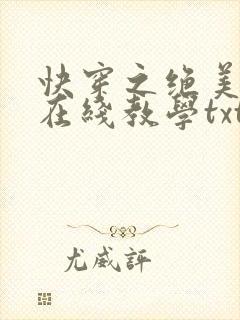 快穿之绝美
在綫教學txt
尤威評